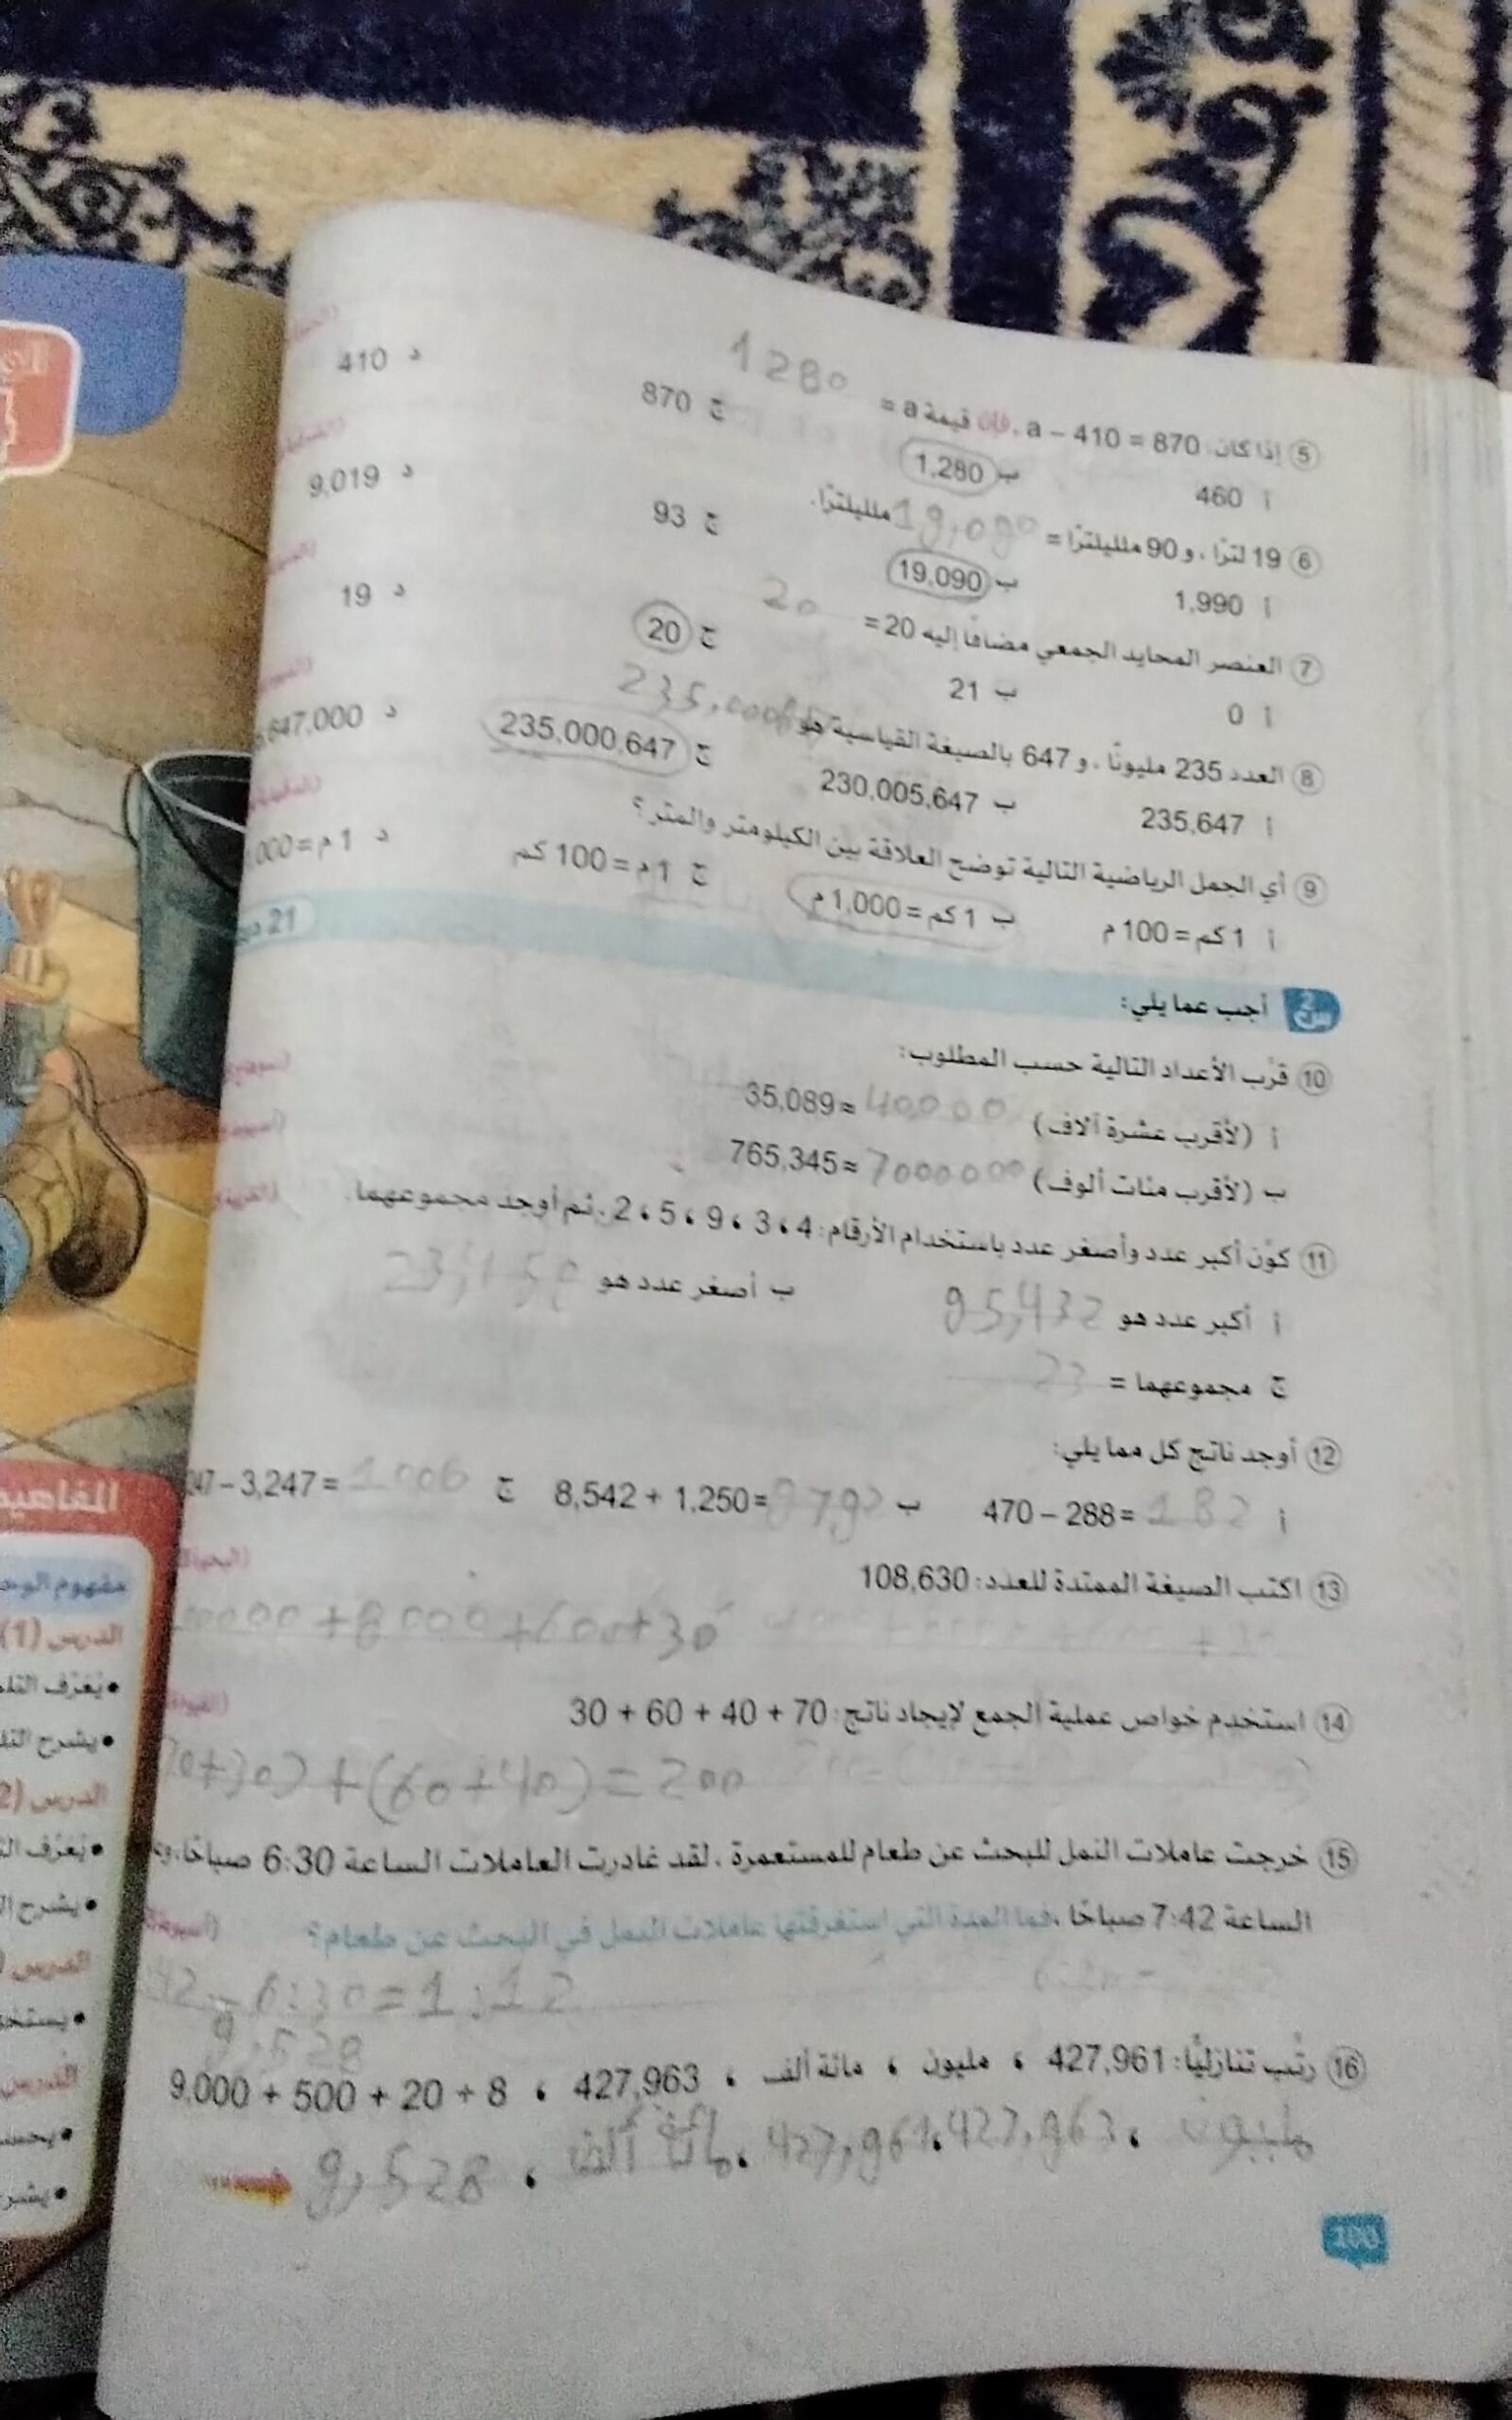 5 إذا كان: a − 410 = 870، فإن قيمة a = 1280
أ 460 ب 1,280 ج 870 د 410
6 19 لترًا، و 90 ملليلترًا = 19,090 ملليلترًا.
أ 1,990 ب 19,090 ج 93 د 9,019
7 العنصر المحايد الجمعي مضافًا إليه 20 = 20
أ 0 ب 21 ج 20 د 19
8 العدد 235 مليونًا، و 647 بالصيغة القياسية هو
أ 235,647 ب 230,005,647 ج 235,000,647 د
9 أي الجمل الرياضية التالية توضح العلاقة بين الكيلومتر والمتر؟
أ 1 كم = 100 م ب 1 كم = 1,000 م ج 1 م = 100 كم د 1 م =
س2 أجب عما يلي:
21
10 قرّب الأعداد التالية حسب المطلوب:
أ (لأقرب عشرة آلاف) 35,089 ≈ 40000
ب (لأقرب مئات ألوف) 765,345 ≈
11 كوّن أكبر عدد وأصغر عدد باستخدام الأرقام: 4، 3، 9، 5، 2، ثم أوجد مجموعهما.
أ أكبر عدد هو 95,432 ب أصغر عدد هو
ج مجموعهما = 23
12 أوجد ناتج كل مما يلي:
أ 470 − 288 = 182 ب 8,542 + 1,250 = 9792 ج − 3,247 = 1006
13 اكتب الصيغة الممتدة للعدد: 108,630
+ 8000 + 600 + 30
14 استخدم خواص عملية الجمع لإيجاد ناتج: 30 + 60 + 40 + 70
+ (60 + 40) = 200
15 خرجت عاملات النمل للبحث عن طعام للمستعمرة، لقد غادرت العاملات الساعة 6:30 صباحًا،
الساعة 7:42 صباحًا، فما المدة التي استغرقتها عاملات النمل في البحث عن طعام؟
− 6:30 = 1:12
9,528
16 رتّب تنازليًّا: 427,961 ، مليون ، مائة ألف ، 427,963 ، 9,000 + 500 + 20 + 8
مليون ، 427,963 ، 427,961 ، مائة ألف ، 9,528
100
المفاهيم
الدرس (1)